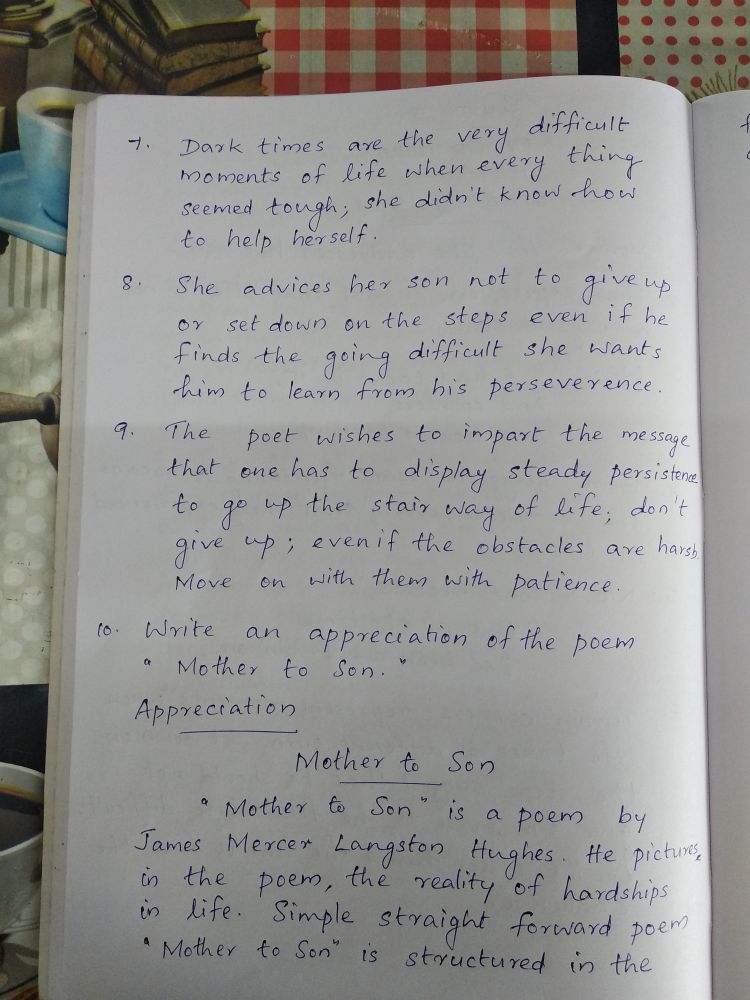 7. Dark times are the very difficult
moments of life when every thing
seemed tough; she didn't know how
to help herself.
8. She advices her son not to give up
or set down on the steps even if he
finds the going difficult she wants
him to learn from his perseverence.
9. The poet wishes to impart the message
that one has to display steady persistence
to go up the stair way of life; don't
give up; even if the obstacles are harsh.
Move on with them with patience.
10. Write an appreciation of the poem
"Mother to Son."
Appreciation
Mother to Son
"Mother to Son" is a poem by
James Mercer Langston Hughes. He pictures,
in the poem, the reality of hardships
in life. Simple straight forward poem
"Mother to Son" is structured in the